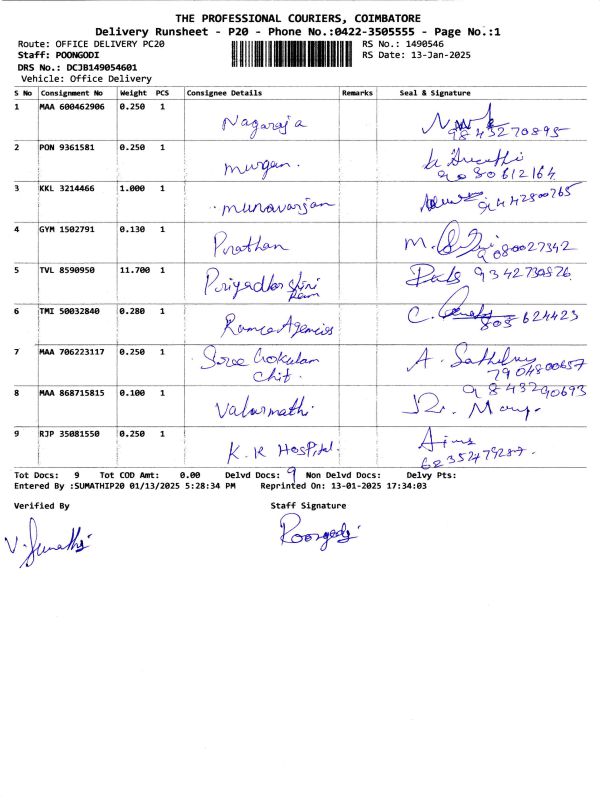 THE PROFESSIONAL COURIERS, COIMBATORE
Delivery Runsheet - P20 - Phone No.:0422-3505555 - Page No.:1
Route: OFFICE DELIVERY PC20 RS No.: 1490546
Staff: POONGODI RS Date: 13-Jan-2025
DRS No.: DCJB149054601
Vehicle: Office Delivery
S No Consignment No Weight PCS Consignee Details Remarks Seal & Signature
1 MAA 600462906 0.250 1 Nagaraja
9843270895
2 PON 9361581 0.250 1 murgan.
9080612164
3 KKL 3214466 1.000 1 munavarjan
9442800765
4 GYM 1502791 0.130 1 Pirathan M.
9080027342
5 TVL 8590950 11.700 1 9342730826
6 TMI 50032840 0.280 1 Ramco Agencies C.
805 624423
7 MAA 706223117 0.250 1 Sree Gokulam A.
Chit. 7904800657
8 MAA 868715815 0.100 1 Valarmathi 9843290693
9 RJP 35081550 0.250 1 K.R Hospital.
6235247928
Tot Docs: 9 Tot COD Amt: 0.00 Delvd Docs: 9 Non Delvd Docs: Delvy Pts:
Entered By :SUMATHIP20 01/13/2025 5:28:34 PM Reprinted On: 13-01-2025 17:34:03
Verified By Staff Signature
V. Sumathi Poongodi